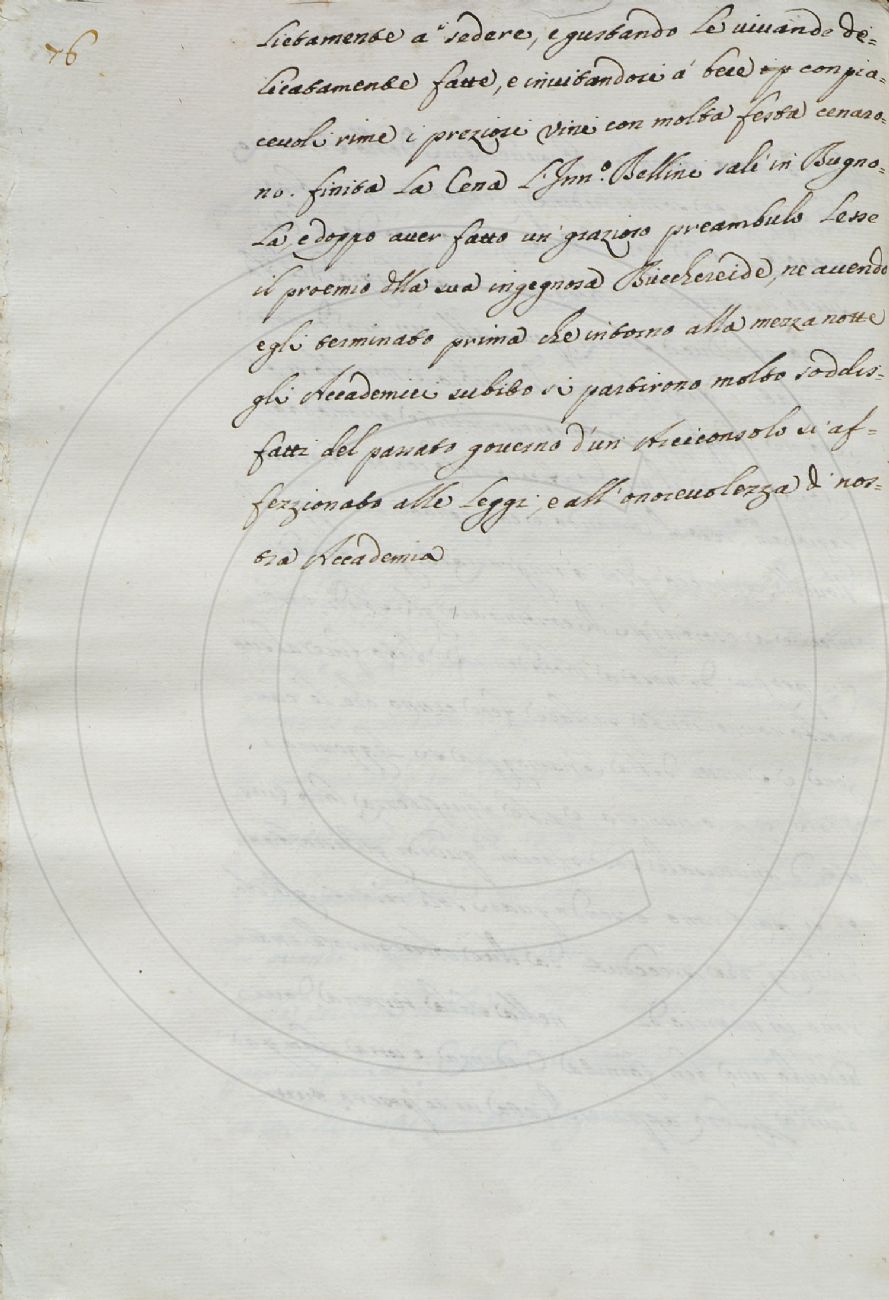 76
lietamente a' sedere, e gustando le uiuande de=
licatamente fatte, e inuitandosi á bere con pia=
ceuoli rime i preziosi vini con molta festa cenaro=
no. finita la Cena L'Inn.º Bellini salì in Bugno=
la, e doppo auer fatto un' grazioso preambulo lesse
il proemio della sua ingegnosa Bucchereide, ne auendo
egli terminato prima che intorno alla mezza notte
gli Accademici subito si partirono molto soddis=
fatti del passato gouerno d'un' Arciconsolo si' af=
fezzionato alle Leggi, e all' onoreuolezza di nos=
tra Accademia